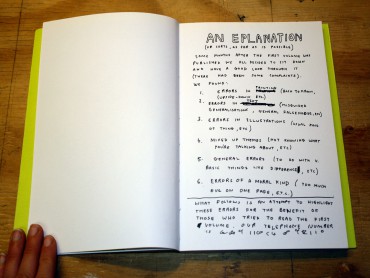 AN EPLANATION
(OF SORTS, AS FAR AS IS POSSIBLE)
SOME MONTHS AFTER THE FIRST VOLUME WAS
PUBLISHED WE ALL AGREED TO SIT DOWN
AND HAVE A GOOD LOOK THROUGH IT
(THERE HAD BEEN SOME COMPLAINTS).
WE FOUND:
1. ERRORS IN PRINTING (BAD
(UPSIDE-DOWN ETC)
2. ERRORS IN TEXT (MISGUIDED
GENERALISATIONS, GENERAL FALSEHOODS, ETC)
3. ERRORS IN ILLUSTRATIONS (USUAL KIND
OF THING, ETC)
4. MIXED UP THEMES (NOT KNOWING WHAT
YOU'RE TALKING ABOUT, ETC)
5. GENERAL ERRORS (TO DO WITH
BASIC THINGS LIKE DIFFERENCE, ETC)
6. ERRORS OF A MORAL KIND (TOO MUCH
EVIL ON ONE PAGE, ETC.)
WHAT FOLLOWS IS AN ATTEMPT TO HIGHLIGHT
THESE ERRORS FOR THE BENEFIT OF
THOSE WHO TRIED TO READ THE FIRST
VOLUME. OUR TELEPHONE NUMBER
IS